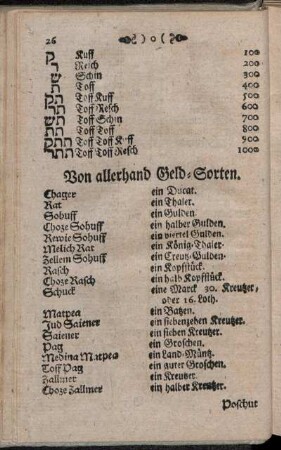 26 )o(
ק Kuff 100
ר Resch 200
ש Schin 300
ת Toff 400
תק Toff Kuff 500
תר Toff Resch 600
תש Toff Schin 700
תת Toff Toff 800
תתק Toff Toff Kuff 900
תתר Toff Toff Resch 1000
Von allerhand Geld-Sorten.
Chager ein Ducat.
Rat ein Thaler.
Sohuff ein Gulden.
Choze Sohuff ein halber Gulden.
Rewie Sohuff ein viertel Gulden.
Melich Rat ein König-Thaler.
Zellem Sohuff ein Creutz-Gulden.
Rasch ein Kopfstück.
Choze Rasch ein halb Kopfstück.
Schuck eine Marck 30. Kreutzer,
oder 16. Loth.
Matpea ein Batzen.
Jud Saiener ein siebenzehen Kreutzer.
Saiener ein sieben Kreutzer.
Pag ein Groschen.
Medina Matpea ein Land-Müntz.
Toff Pag ein guter Groschen.
Zallmer ein Kreutzer.
Choze Zallmer ein halber Kreutzer.
Poschut